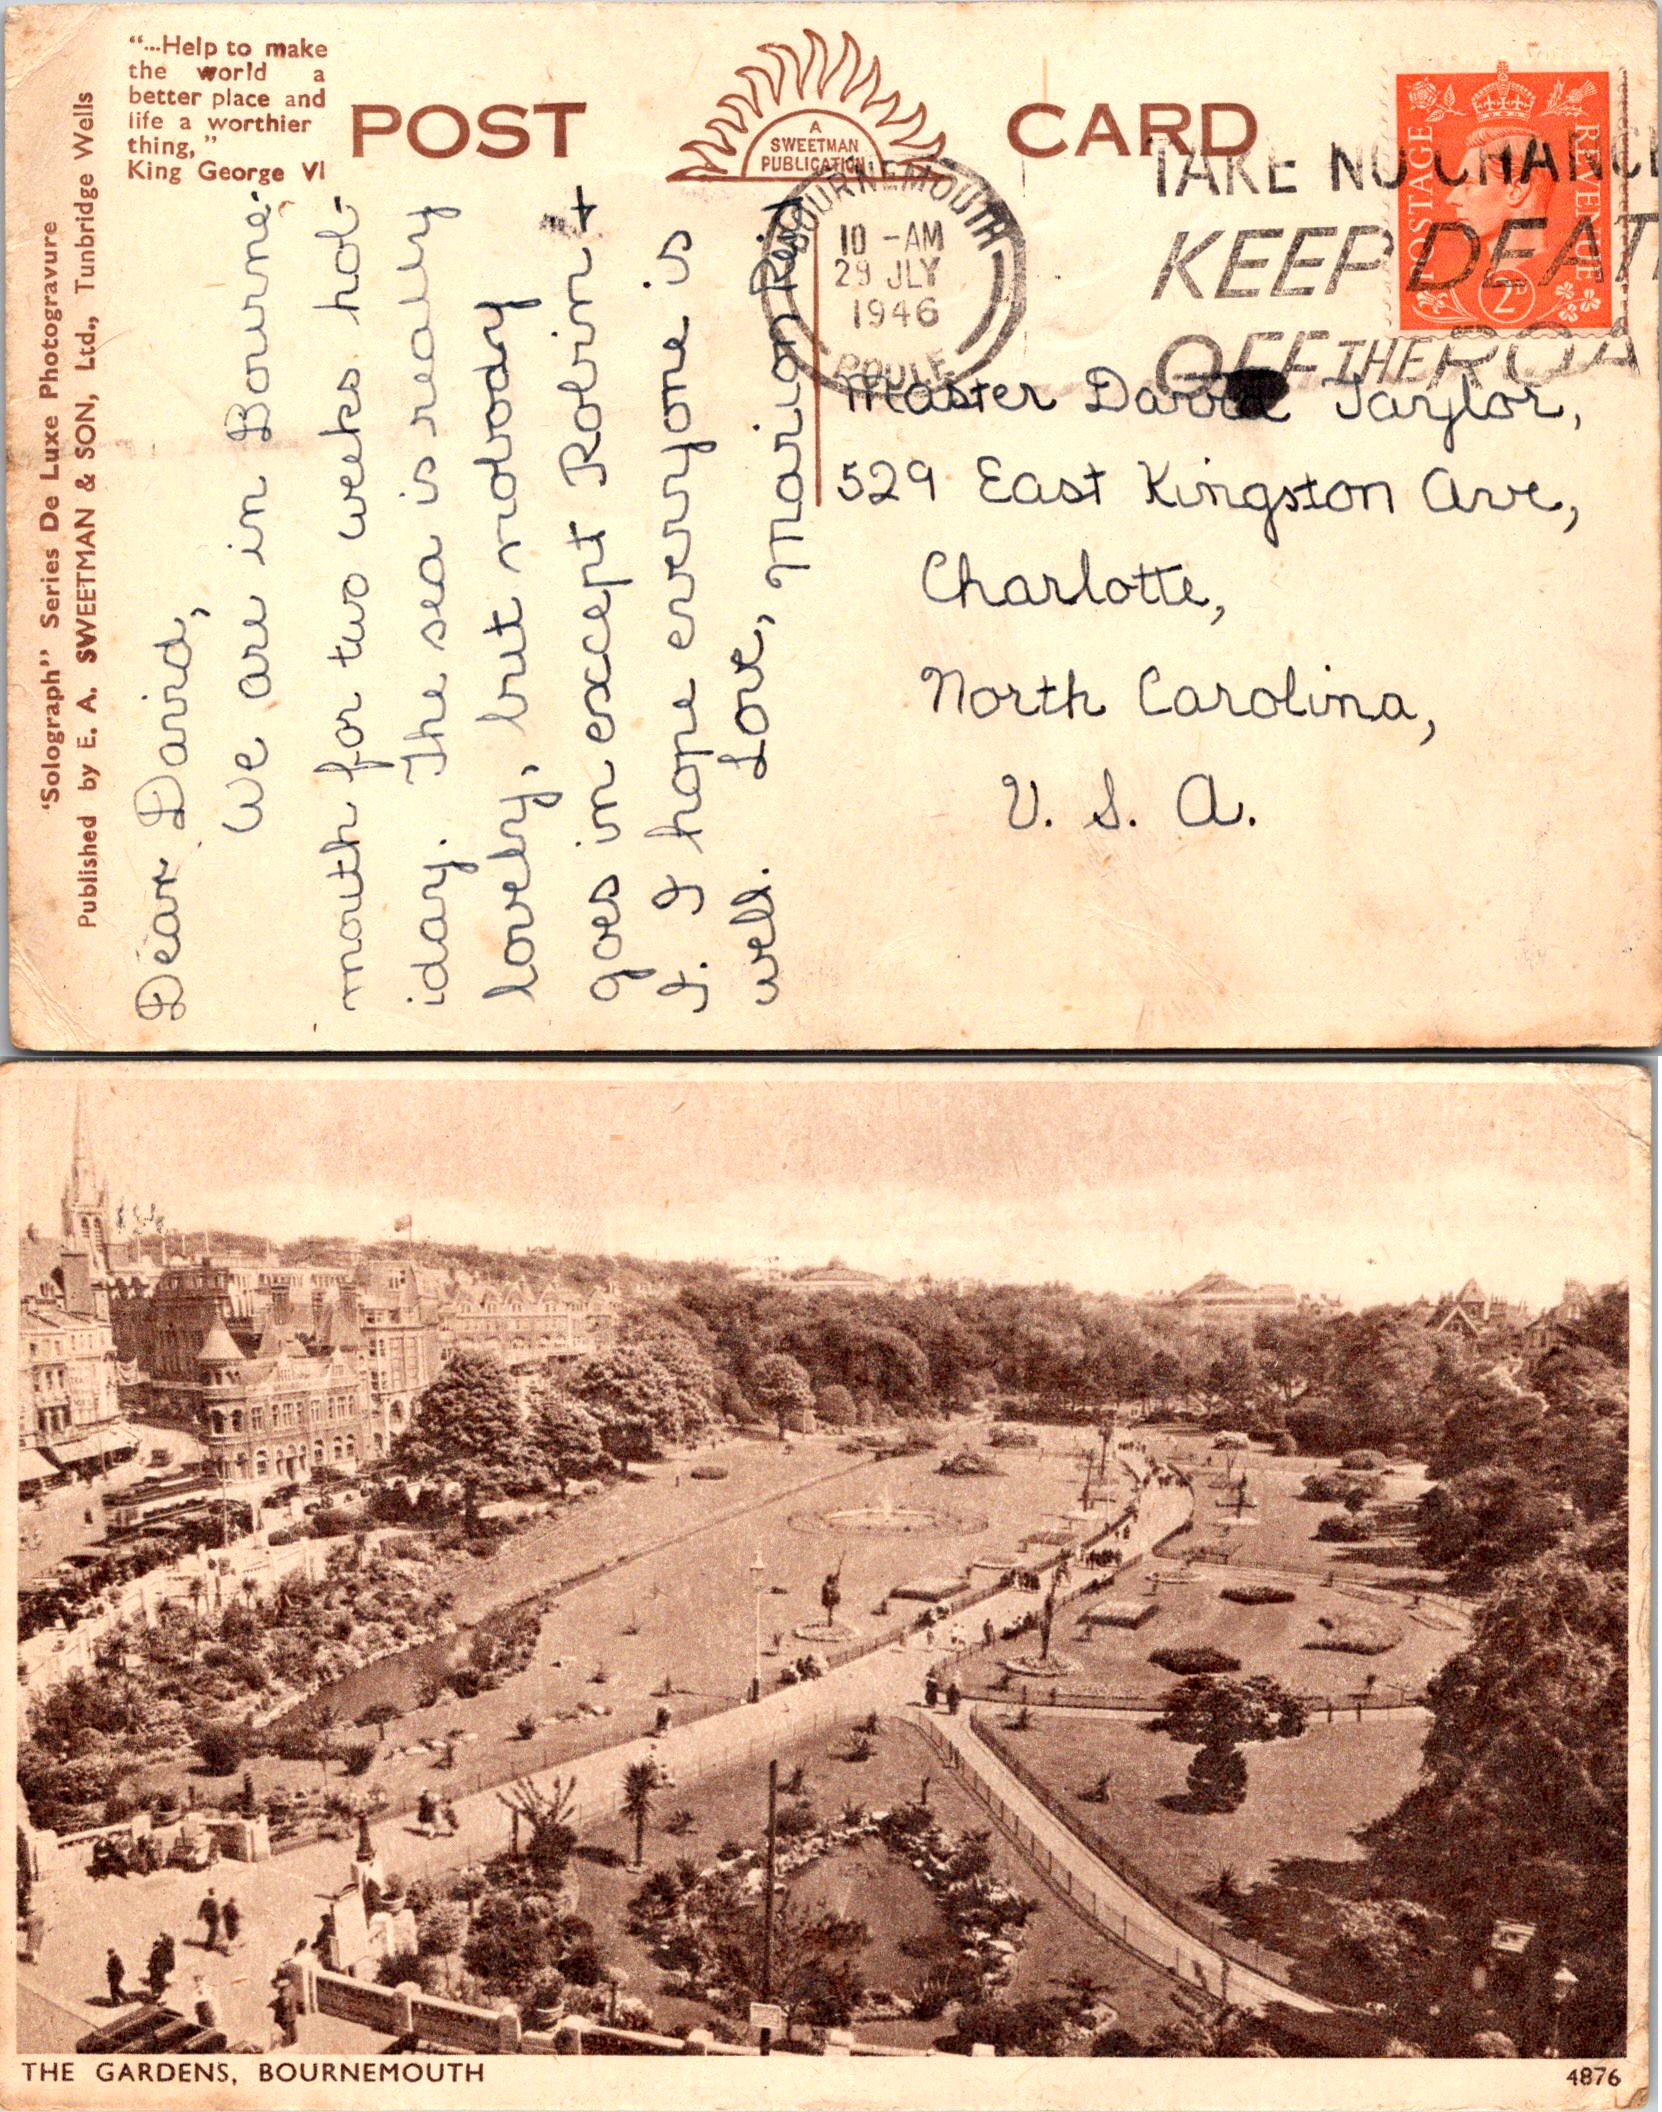 "...Help to make
the world a
better place and
life a worthier
thing,"
King George VI
POST CARD
A
SWEETMAN
PUBLICATION
'Solograph" Series De Luxe Photogravure
Published by E. A. SWEETMAN & SON, Ltd., Tunbridge Wells
BOURNEMOUTH
10 - AM
29 JLY
1946
POOLE
TAKE NO CHANC
KEEP DEAT
OFF THE ROA
POSTAGE
REVENUE
2D
Dear David,
We are in Bourne-
mouth for two weeks hol-
iday. The sea is really
lovely, but nobody
goes in except Robin +
I. I hope everyone is
well. Love, Marion Reid
Master David Taylor,
529 East Kingston Ave,
Charlotte,
North Carolina,
U. S. A.
THE GARDENS, BOURNEMOUTH
4876